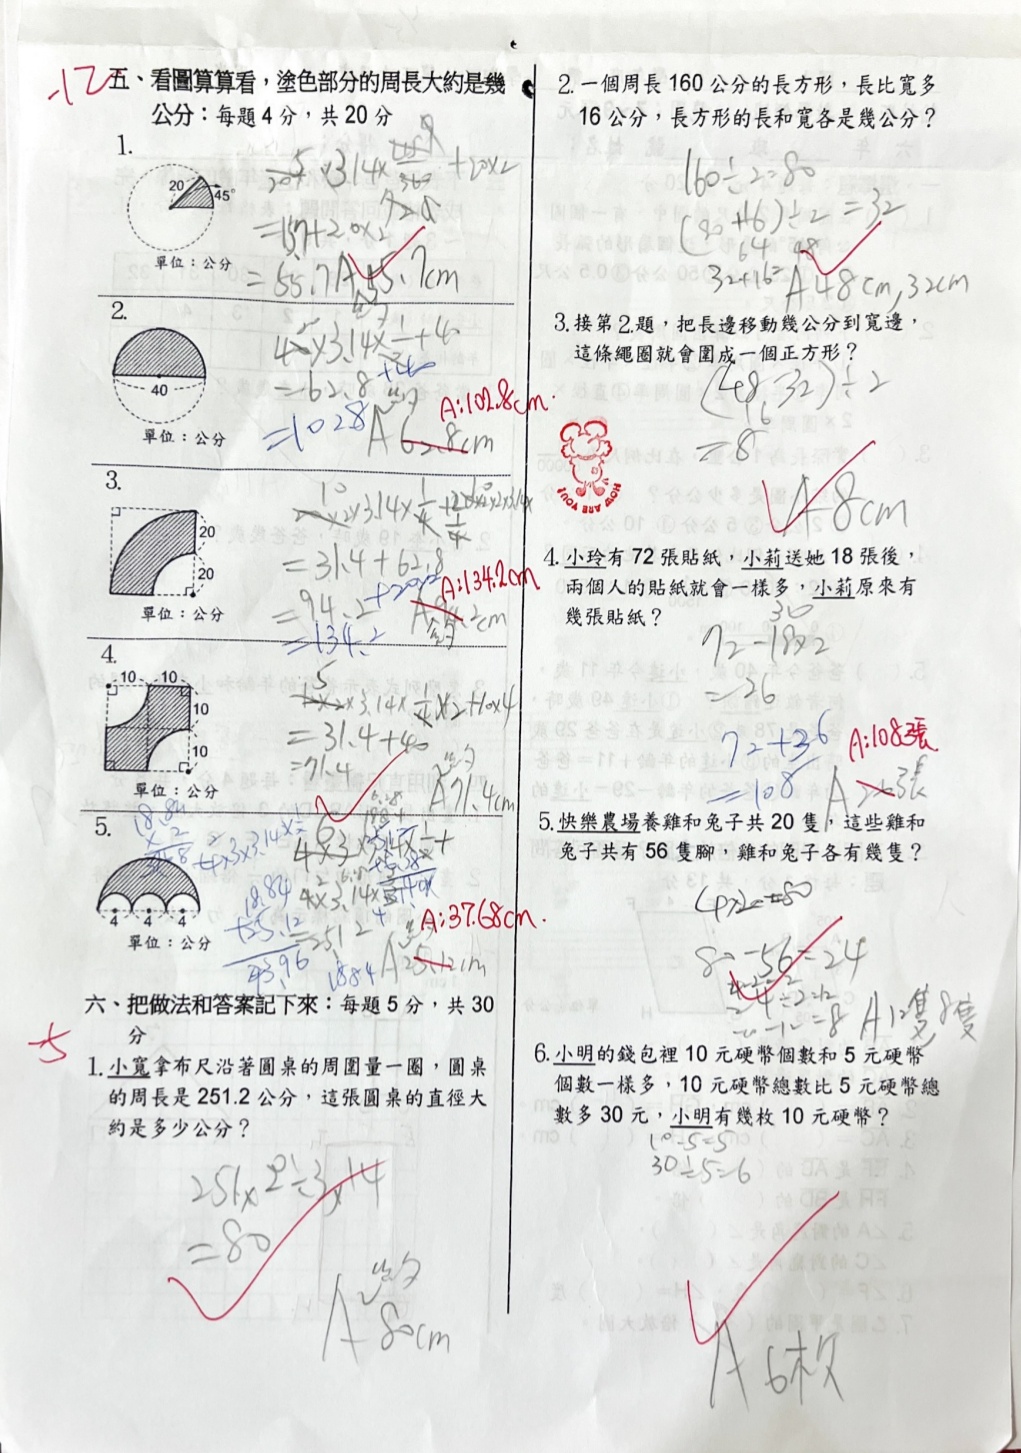 -12
五、看圖算算看，塗色部分的周長大約是幾
公分：每題4分，共20分
1.
20
45°
單位：公分
+20×2
=15.7+20×2
=55.7 A 55.7cm
2.
40
單位：公分
40×3.14×1/2+40
=62.8+40
=102.8
A:102.8cm.
A 62.8cm
3.
20
20
單位：公分
=31.4+62.8
=94.2+20×2
=134.2
A:134.2cm
A 94.2cm
4.
10 10
10
10
單位：公分
=31.4+40
=71.4
A 71.4cm
5.
4 4 4
單位：公分
18.84
+25.12
43.96
A:37.68cm.
A 25.12cm
六、把做法和答案記下來：每題5分，共30
分
-5
1.小寬拿布尺沿著圓桌的周圍量一圈，圓桌
的周長是251.2公分，這張圓桌的直徑大
約是多少公分？
251.2÷3.14
=80
A 約80cm
2.一個周長160公分的長方形，長比寬多
16公分，長方形的長和寬各是幾公分？
160÷2=80
(80-16)÷2=32
64
32+16=48
A 48cm,32cm
3.接第2題，把長邊移動幾公分到寬邊，
這條繩圈就會圍成一個正方形？
(48-32)÷2
16
=8
A 8cm
HOW ARE YOU?
4.小玲有72張貼紙，小莉送她18張後，
兩個人的貼紙就會一樣多，小莉原來有
幾張貼紙？
72-18×2
72+36
=108
A:108張
5.快樂農場養雞和兔子共20隻，這些雞和
兔子共有56隻腳，雞和兔子各有幾隻？
80-56=24
4-2=2
24÷2=12
20-12=8
A 12隻,8隻
6.小明的錢包裡10元硬幣個數和5元硬幣
個數一樣多，10元硬幣總數比5元硬幣總
數多30元，小明有幾枚10元硬幣？
10-5=5
30÷5=6
A 6枚